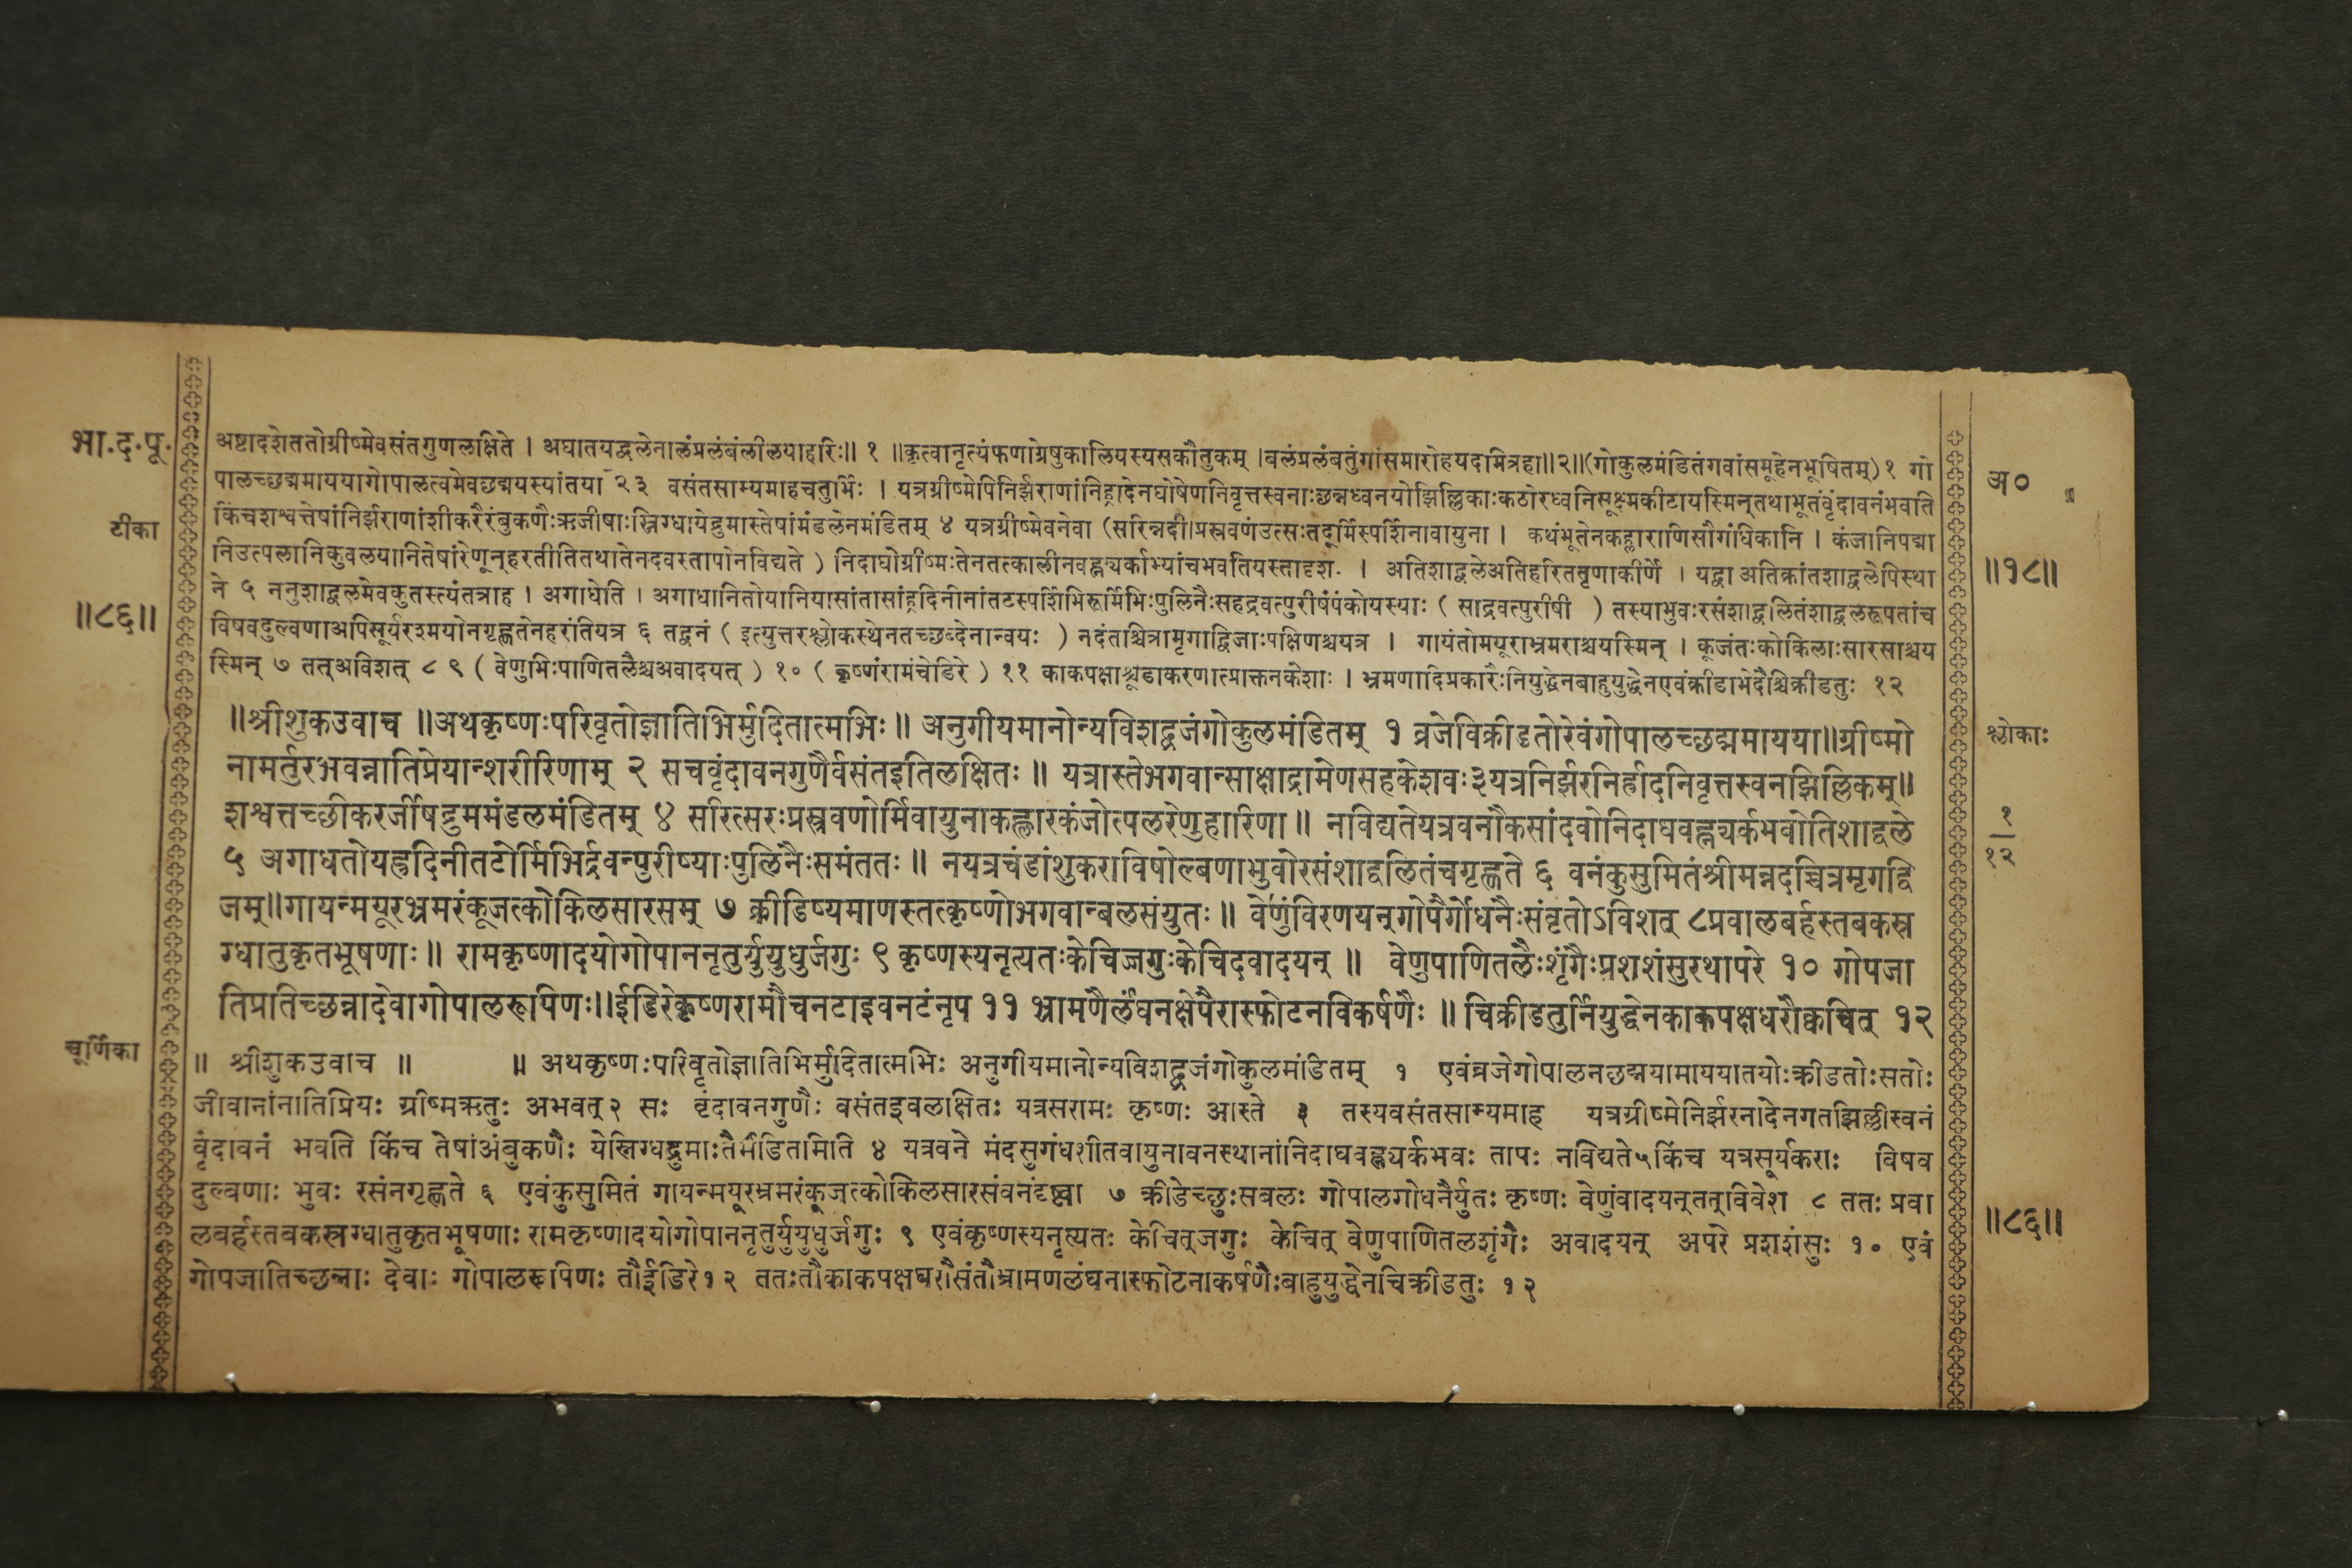 भा.द.पू.
टीका
॥८६॥
चूर्णिका
अष्टादशेततोग्रीष्मेवसंतगुणलक्षिते । अघातयद्बलेनालंप्रलंबंलीलयाहरिः॥ १ ॥कृत्वानृत्यंफणाग्रेषुकालियस्यसकौतुकम् ।बलंप्रलंबतुंगांसमारोहयदमित्रहा॥२॥(गोकुलमंडितंगवांसमूहेनभूषितम्)१ गो
पालच्छद्ममाययागोपालत्वमेवछद्मयस्यांतया २३ वसंतसाम्यमाहचतुर्भिः । यत्रग्रीष्मेपिनिर्झराणांनिह्रादेनघोषेणनिवृत्तस्वनाःछन्नध्वनयोझिल्लिकाःकठोरध्वनिसूक्ष्मकीटायस्मिन्तथाभूतंवृंदावनंभवति
किंचशश्वत्तेषांनिर्झराणांशीकरैरंबुकणैःऋजीषाःस्निग्धायेद्रुमास्तेषांमंडलेनमंडितम् ४ यत्रग्रीष्मेवनेवा (सरिन्नदी।प्रस्रवणंउत्सःतदूर्मिस्पर्शिनावायुना । कथंभूतेनकह्लाराणिसौगंधिकानि । कंजानिपद्मा
निउत्पलानिकुवलयानितेषांरेणून्हरतीतितथातेनदवस्तापोनविद्यते ) निदाघोग्रीष्मःतेनतत्कालीनवह्न्यर्काभ्यांचभवतियस्तादृशः । अतिशाद्वलेअतिहरिततृणाकीर्णे । यद्वा अतिक्रांतशाद्वलेपिस्था
ने ५ ननुशाद्वलमेवकुतस्त्यंतत्राह । अगाधेति । अगाधानितोयानियासांतासांह्रदिनीनांतटस्पर्शिभिरूर्मिभिःपुलिनैःसहद्रवत्पुरीषंपंकोयस्याः ( साद्रवत्पुरीषी ) तस्याभुवःरसंशाद्वलितंशाद्वलरूपतांच
विषवदुल्वणाअपिसूर्यरश्मयोनगृह्णतेनहरंतियत्र ६ तद्वनं ( इत्युत्तरश्लोकस्थेनतच्छब्देनान्वयः ) नदंताश्चित्रामृगाद्विजाःपक्षिणश्चयत्र । गायंतोमयूराभ्रमराश्चयस्मिन् । कूजंतःकोकिलाःसारसाश्चय
स्मिन् ७ तत्अविशत् ८ ९ ( वेणुभिःपाणितलैश्चअवादयत् ) १० ( कृष्णंरामंचेडिरे ) ११ काकपक्षाश्चूडाकरणात्प्राक्तनकेशाः । भ्रमणादिप्रकारैःनियुद्धेनबाहुयुद्धेनएवंक्रीडाभेदैश्चिक्रीडतुः १२
॥श्रीशुकउवाच ॥अथकृष्णःपरिवृतोज्ञातिभिर्मुदितात्मभिः॥ अनुगीयमानोन्यविशद्व्रजंगोकुलमंडितम् १ व्रजेविक्रीडतोरेवंगोपालच्छद्ममायया॥ग्रीष्मो
नामर्तुरभवन्नातिप्रेयान्शरीरिणाम् २ सचवृंदावनगुणैर्वसंतइतिलक्षितः ॥ यत्रास्तेभगवान्साक्षाद्रामेणसहकेशवः३यत्रनिर्झरनिर्ह्रादनिवृत्तस्वनझिल्लिकम्॥
शश्वत्तच्छीकरर्जीषद्रुममंडलमंडितम् ४ सरित्सरःप्रस्रवणोर्मिवायुनाकह्लारकंजोत्पलरेणुहारिणा॥ नविद्यतेयत्रवनौकसांदवोनिदाघवह्न्यर्कभवोतिशाद्वले
५ अगाधतोयह्रदिनीतटोर्मिभिर्द्रवत्पुरीष्याःपुलिनैःसमंततः ॥ नयत्रचंडांशुकराविषोल्बणाभुवोरसंशाद्वलितंचगृह्णते ६ वनंकुसुमितंश्रीमन्नदच्चित्रमृगद्वि
जम्॥गायन्मयूरभ्रमरंकूजत्कोकिलसारसम् ७ क्रीडिष्यमाणस्तत्कृष्णोभगवान्बलसंयुतः॥ वेणुंविरणयन्गोपैर्गोधनैःसंवृतोऽविशत् ८प्रवालबर्हस्तबकस्र
ग्धातुकृतभूषणाः॥ रामकृष्णादयोगोपाननृतुर्युयुधुर्जगुः ९ कृष्णस्यनृत्यतःकेचिज्जगुःकेचिदवादयन् ॥ वेणुपाणितलैःशृंगैःप्रशशंसुरथापरे १० गोपजा
तिप्रतिच्छन्नादेवागोपालरूपिणः॥ईडिरेकृष्णरामौचनटाइवनटंनृप ११ भ्रामणैर्लंघनक्षेपैरास्फोटनविकर्षणैः ॥ चिक्रीडतुर्नियुद्धेनकाकपक्षधरौक्वचित् १२
॥ श्रीशुकउवाच ॥ ॥ अथकृष्णःपरिवृतोज्ञातिभिर्मुदितात्मभिः अनुगीयमानोन्यविशद्व्रजंगोकुलमंडितम् १ एवंव्रजेगोपालनछद्मयामाययातयोःक्रीडतोःसतोः
जीवानांनातिप्रियः ग्रीष्मऋतुः अभवत्२ सः वृंदावनगुणैः वसंतइवलक्षितः यत्रसरामः कृष्णः आस्ते ३ तस्यवसंतसाम्यमाह यत्रग्रीष्मेनिर्झरनादेनगतझिल्लीस्वनं
वृंदावनं भवति किंच तेषांअंबुकणैः येस्निग्धद्रुमाःतैर्मंडितमिति ४ यत्रवने मंदसुगंधशीतवायुनावनस्थानांनिदाघवह्न्यर्कभवः तापः नविद्यते५किंच यत्रसूर्यकराः विषव
दुल्वणाः भुवः रसंनगृह्णते ६ एवंकुसुमितं गायन्मयूरभ्रमरंकूजत्कोकिलसारसंवनंदृष्ट्वा ७ क्रीडेच्छुःसबलः गोपालगोधनैर्युतः कृष्णः वेणुंवादयन्तत्विवेश ८ ततः प्रवा
लबर्हस्तबकस्रग्धातुकृतभूषणाः रामकृष्णादयोगोपाननृतुर्युयुधुर्जगुः ९ एवंकृष्णस्यनृत्यतः केचित्जगुः केचित् वेणुपाणितलशृंगैः अवादयन् अपरे प्रशशंसुः १० एवं
गोपजातिच्छन्नाः देवाः गोपालरूपिणः तौईडिरे१२ ततःतौकाकपक्षधरौसंतौभ्रामणलंघनास्फोटनाकर्षणैःबाहुयुद्धेनचिक्रीडतुः १२
अ०
॥१८॥
श्लोकाः
१
१२
॥८६॥